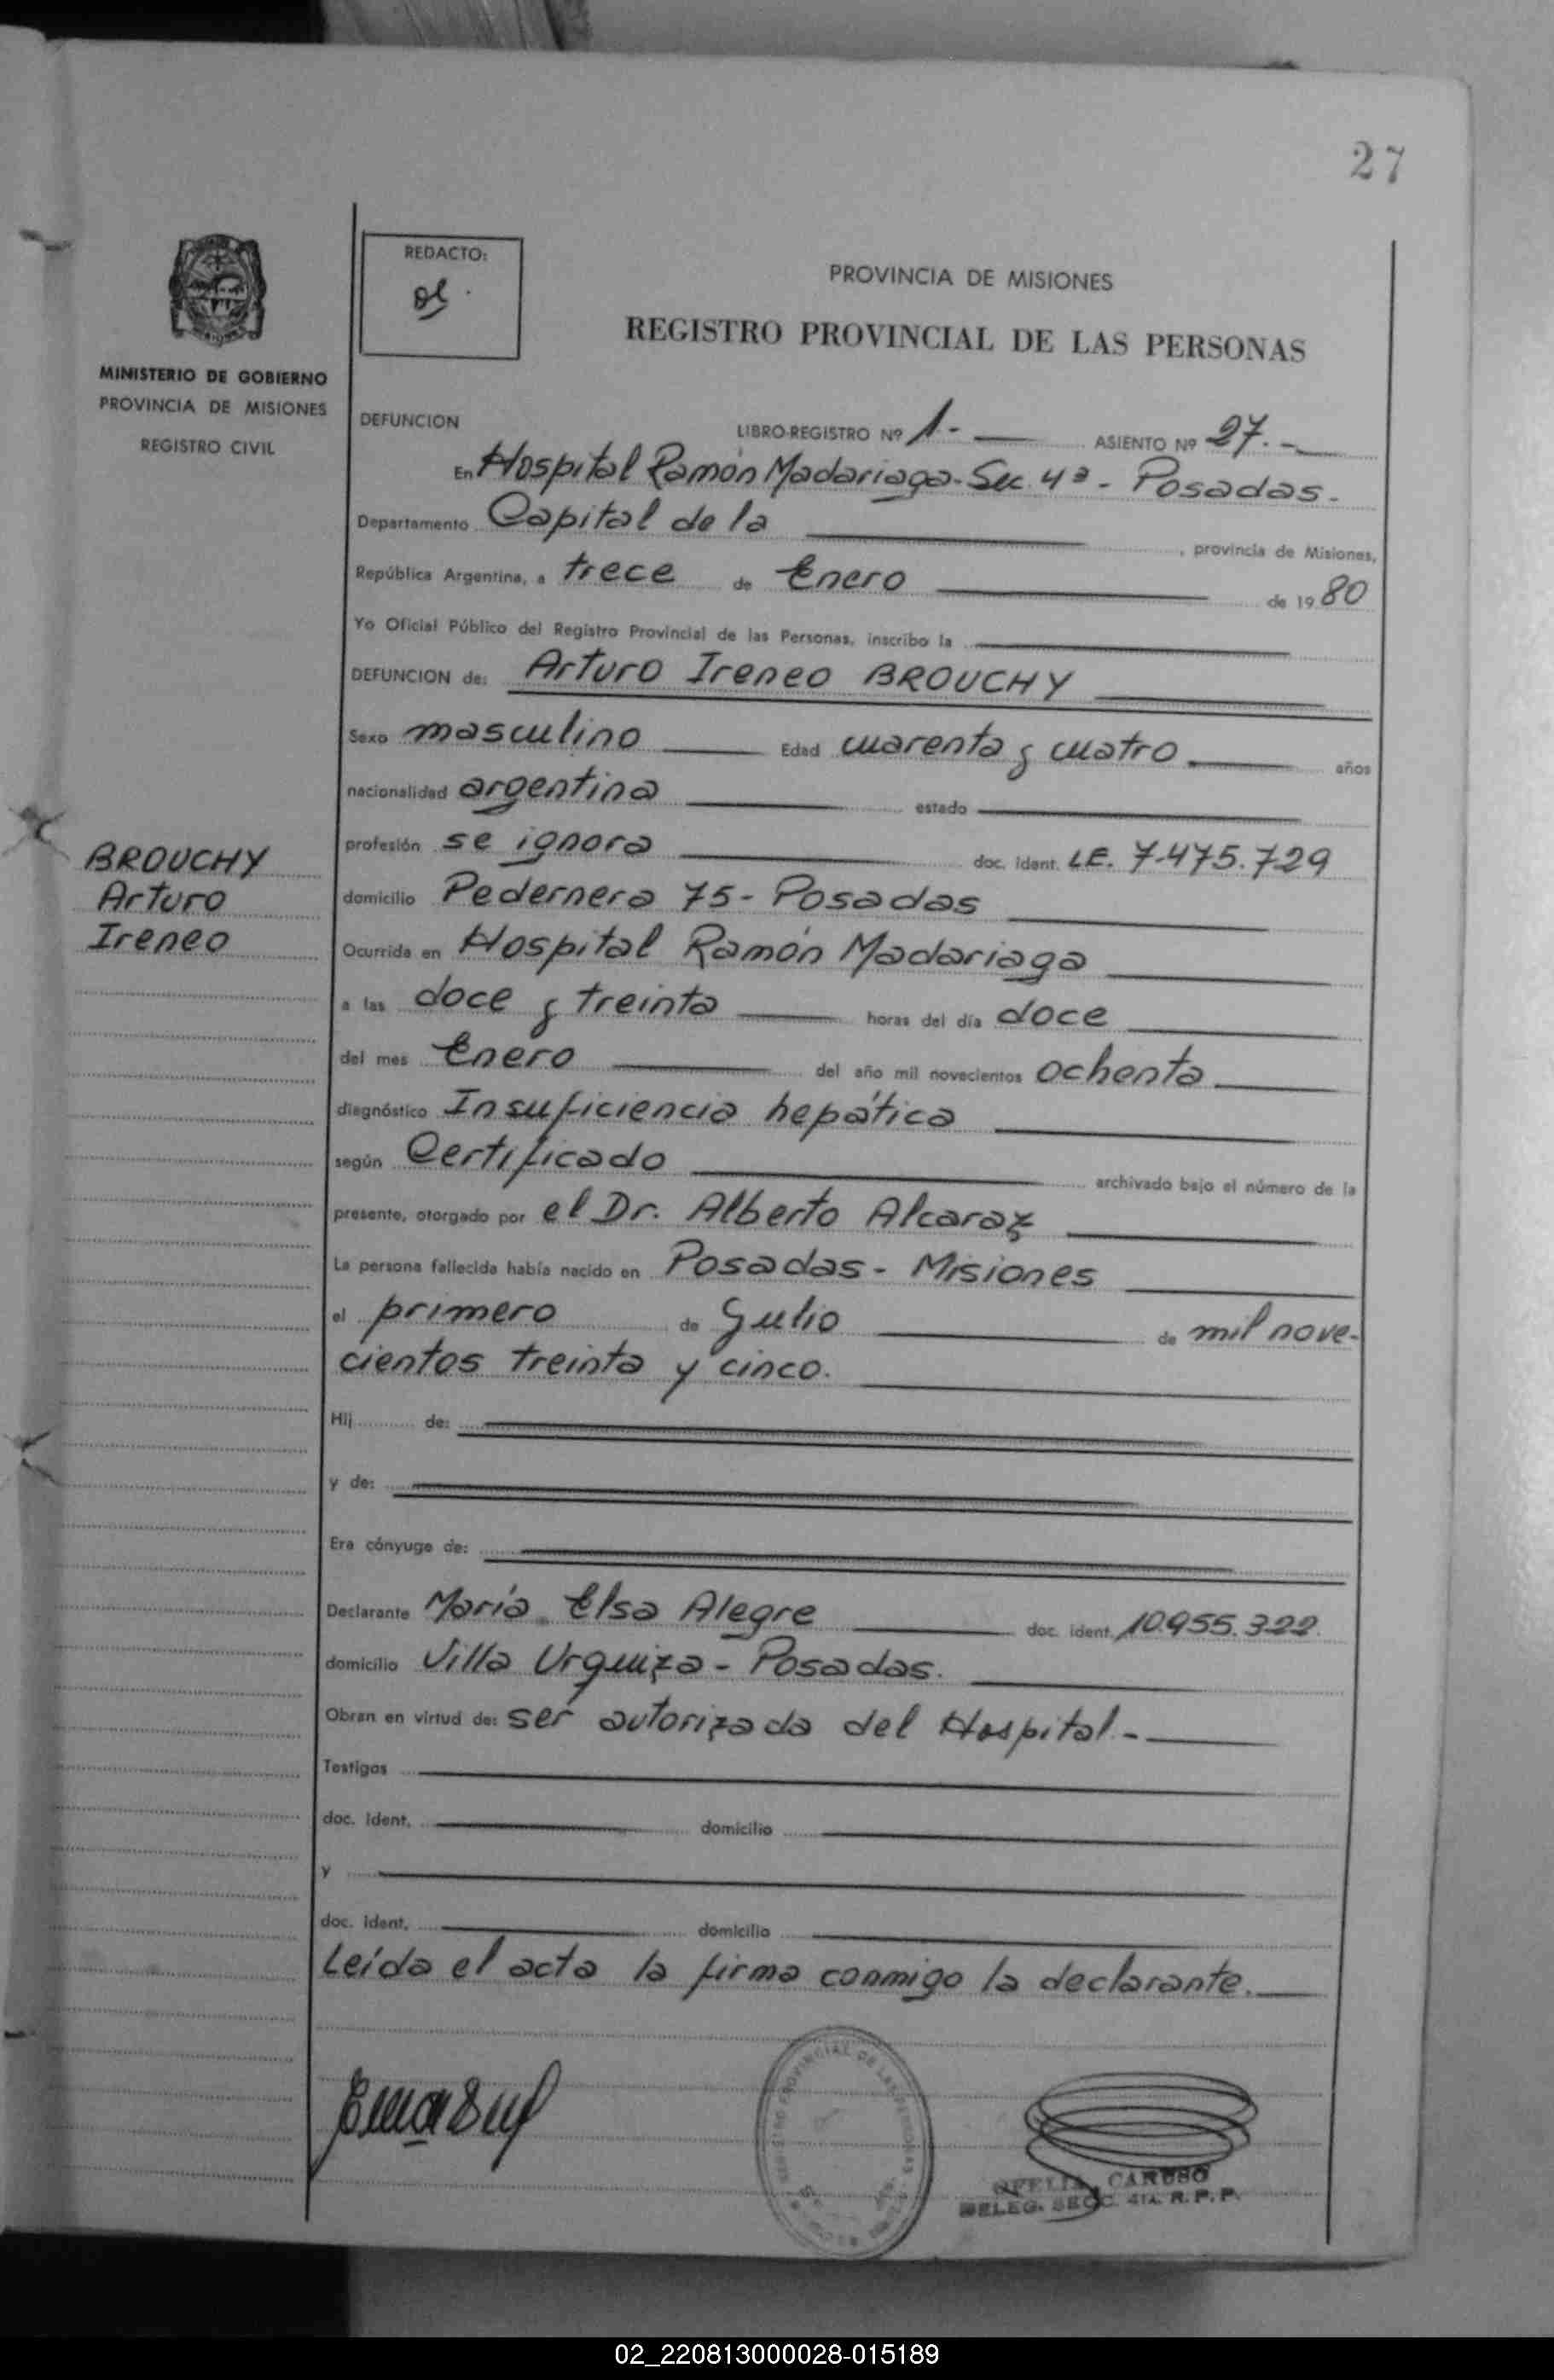 27
REDACTO:
MINISTERIO DE GOBIERNO
PROVINCIA DE MISIONES
REGISTRO CIVIL
PROVINCIA DE MISIONES
REGISTRO PROVINCIAL DE LAS PERSONAS
DEFUNCION LIBRO-REGISTRO Nº 1.- ASIENTO Nº 27.-
En Hospital Ramón Madariaga- Sec. 4ª - Posadas.-
Departamento Capital de la , provincia de Misiones,
República Argentina, a trece de Enero de 1980
Yo Oficial Público del Registro Provincial de las Personas, inscribo la
DEFUNCION de: Arturo Ireneo BROUCHY
Sexo masculino Edad cuarenta y cuatro años
nacionalidad argentina estado
profesión se ignora doc. ident. LE. 7.475.729
BROUCHY
Arturo
Ireneo
domicilio Pedernera 75- Posadas
Ocurrida en Hospital Ramón Madariaga
a las doce y treinta horas del día doce
del mes Enero del año mil novecientos ochenta
diagnóstico Insuficiencia hepática
según Certificado archivado bajo el número de la
presente, otorgado por el Dr. Alberto Alcaraz
La persona fallecida había nacido en Posadas - Misiones
el primero de Julio de mil nove-
cientos treinta y cinco.
Hij de:
y de:
Era cónyuge de:
Declarante María Elsa Alegre doc. ident. 10.955.322
domicilio Villa Urquiza - Posadas.
Obran en virtud de: ser autorizada del Hospital.-
Testigos
doc. ident. domicilio
y
doc. ident. domicilio
Leída el acta la firma conmigo la declarante.
REGISTRO PROVINCIAL DE LAS PERSONAS
OFELIA CARUSO
DELEG. SECC. 4ta. R.P.P.
02_220813000028-015189